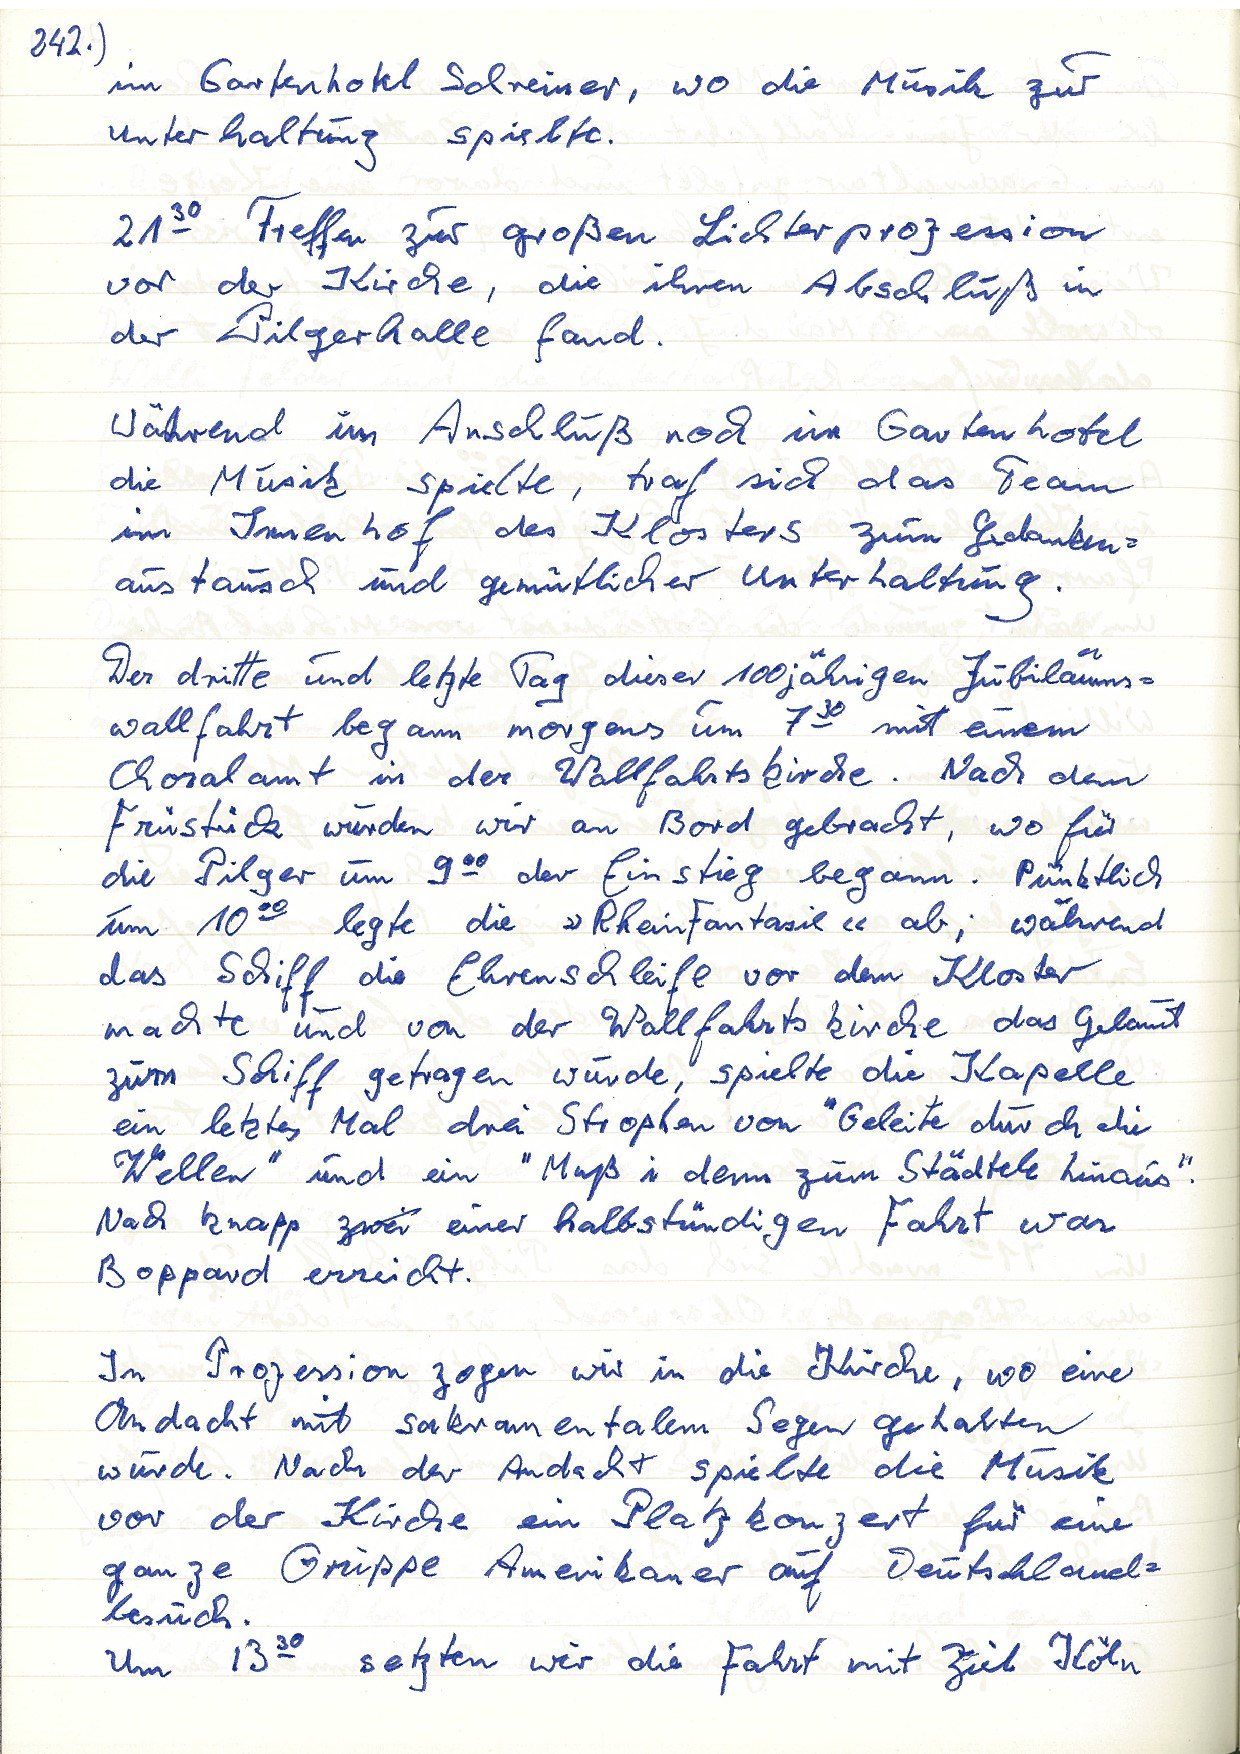 242.)
im Gartenhotel Schreiner, wo die Musik zur
Unterhaltung spielte.
21³⁰ Treffen zur großen Lichterprozession
vor der Kirche, die ihren Abschluß in
der Pilgerhalle fand.
Während im Anschluß noch im Gartenhotel
die Musik spielte, traf sich das Team
im Innenhof des Klosters zum Gedanken=
austausch und gemütlicher Unterhaltung.
Der dritte und letzte Tag dieser 100jährigen Jubiläums=
wallfahrt begann morgens um 7³⁰ mit einem
Choralamt in der Wallfahrtskirche. Nach dem
Früstück wurden wir an Bord gebracht, wo für
die Pilger um 9⁰⁰ der Einstieg begann. Pünktlich
um 10⁰⁰ legte die »RheinFantasie« ab; während
das Schiff die Ehrenschleife vor dem Kloster
machte und von der Wallfahrtskirche das Geläut
zum Schiff getragen wurde, spielte die Kapelle
ein letztes Mal drei Strophen von "Geleite durch die
Wellen" und ein "Muß i denn zum Städtele hinaus".
Nach knapp zwei einer halbstündigen Fahrt war
Boppard erreicht.
In Prozession zogen wir in die Kirche, wo eine
Andacht mit sakramentalem Segen gehalten
wurde. Nach der Andacht spielte die Musik
vor der Kirche ein Platzkonzert für eine
ganze Gruppe Amerikaner auf Deutschland=
besuch.
Um 13³⁰ setzten wir die Fahrt mit Ziel Köln